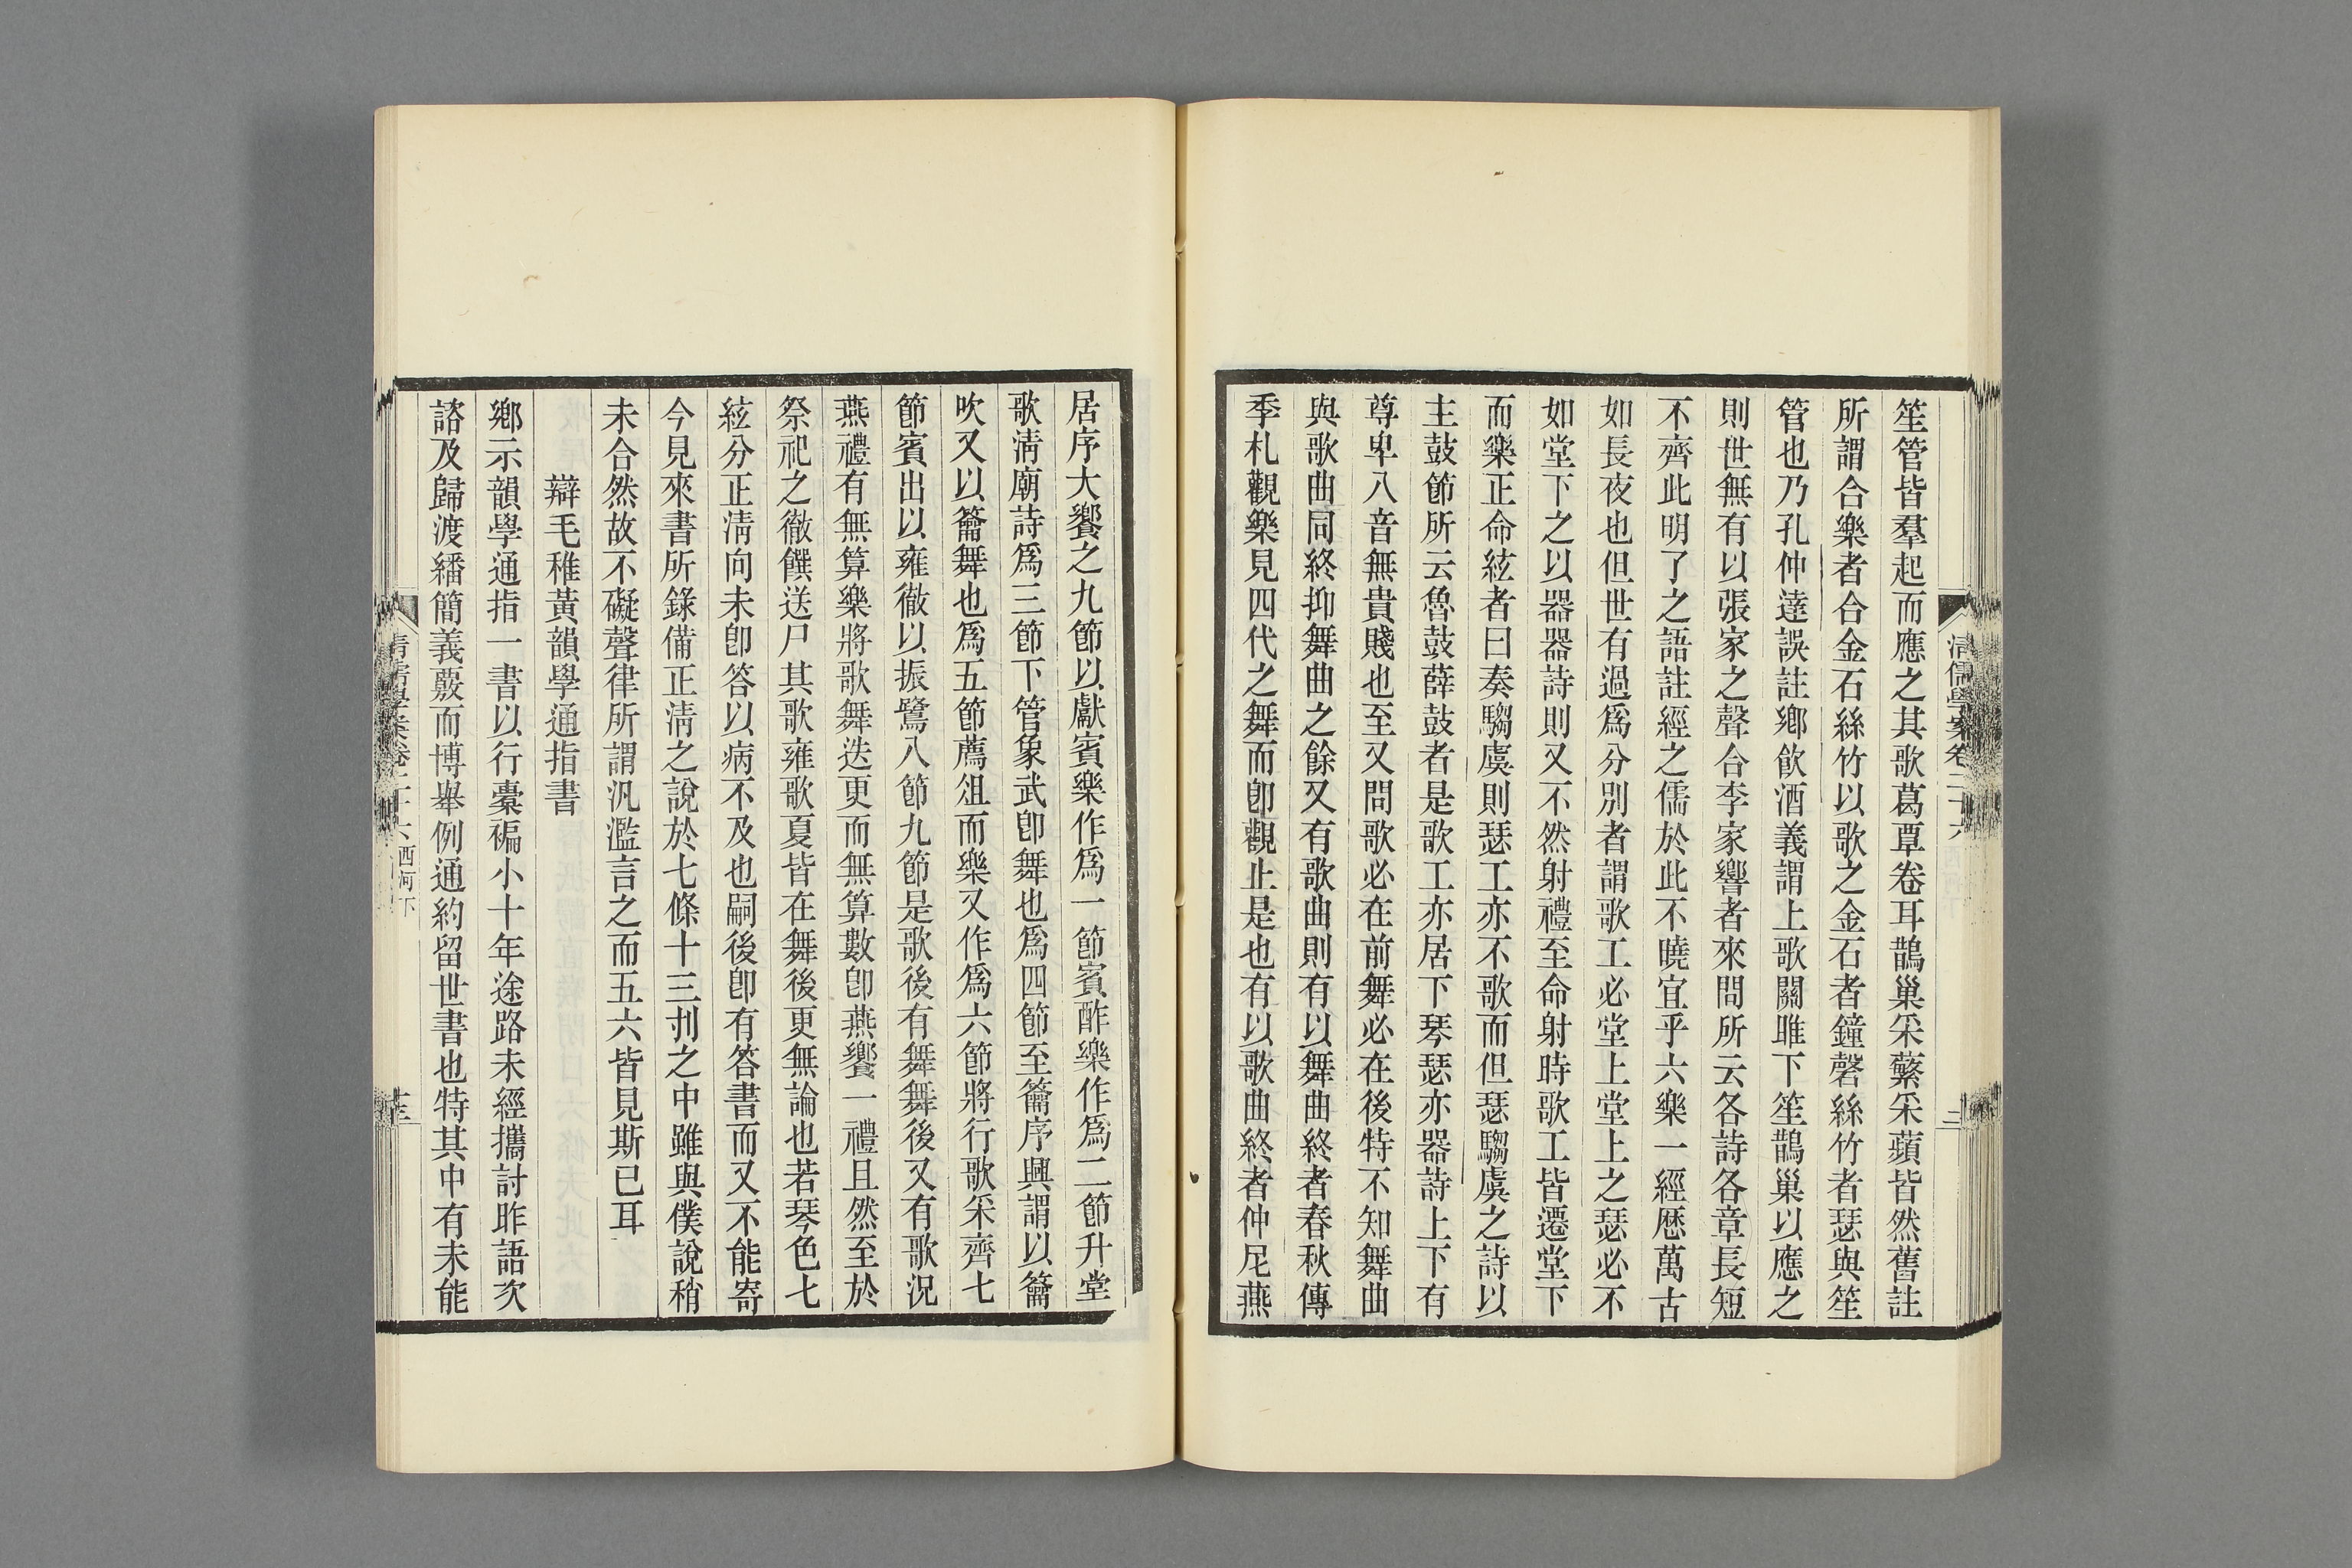 清儒學案卷二十六
笙管皆羣起而應之其歌葛覃卷耳鵲巢采蘩采蘋皆然舊註
所謂合樂者合金石絲竹以歌之金石者鐘磬絲竹者瑟與笙
管也乃孔仲達誤註鄉飮酒義謂上歌關雎下笙鵲巢以應之
則世無有以張家之聲合李家響者來問所云各詩各章長短
不齊此明了之語註經之儒於此不曉宜乎六樂一經歷萬古
如長夜也但世有過爲分別者謂歌工必堂上堂上之瑟必不
如堂下之以器器詩則又不然射禮至命射時歌工皆遷堂下
而樂正命絃者曰奏騶虞則瑟工亦不歌而但瑟騶虞之詩以
主鼓節所云魯鼓薛鼓者是歌工亦居下琴瑟亦器詩上下有
尊卑八音無貴賤也至又問歌必在前舞必在後特不知舞曲
與歌曲同終抑舞曲之餘又有歌曲則有以舞曲終者春秋傳
季札觀樂見四代之舞而卽觀止是也有以歌曲終者仲尼燕
居序大饗之九節以獻賓樂作爲一節賓酢樂作爲二節升堂
歌淸廟詩爲三節下管象武卽舞也爲四節至籥序興謂以籥
吹又以籥舞也爲五節薦俎而樂又作爲六節將行歌采齊七
節賓出以雍徹以振鷺八節九節是歌後有舞舞後又有歌況
燕禮有無算樂將歌舞迭更而無算數卽燕饗一禮且然至於
祭祀之徹饌送尸其歌雍歌夏皆在舞後更無論也若琴色七
絃分正淸向未卽答以病不及也嗣後卽有答書而又不能寄
今見來書所錄備正淸之說於七條十三刌之中雖與僕說稍
未合然故不礙聲律所謂汎濫言之而五六皆見斯已耳
辯毛稚黃韻學通指書
鄉示韻學通指一書以行橐褊小十年途路未經攜討昨語次
諮及歸渡繙簡義覈而博舉例通約留世書也特其中有未能
西河下